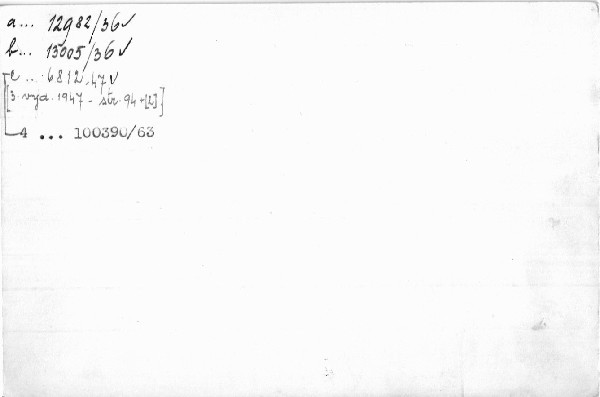 a... 12982/36✓
b... 15005/36✓
c... 6812.47✓
[3. vyd. 1947 - str. 94+[2]]
4 ... 100390/63